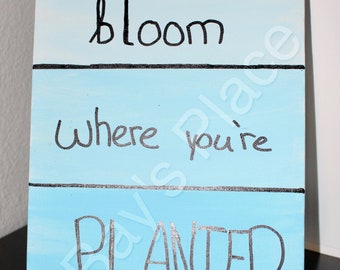 bloom
where you're
PLANTED
Bay's Place